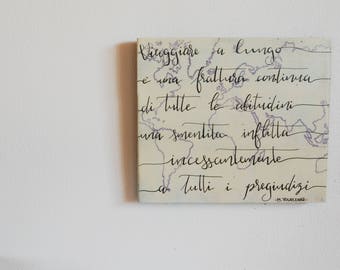 Viaggiare a lungo
è una frattura continua
di tutte le abitudini
una smentita inflitta
incessantemente
a tutti i pregiudizi